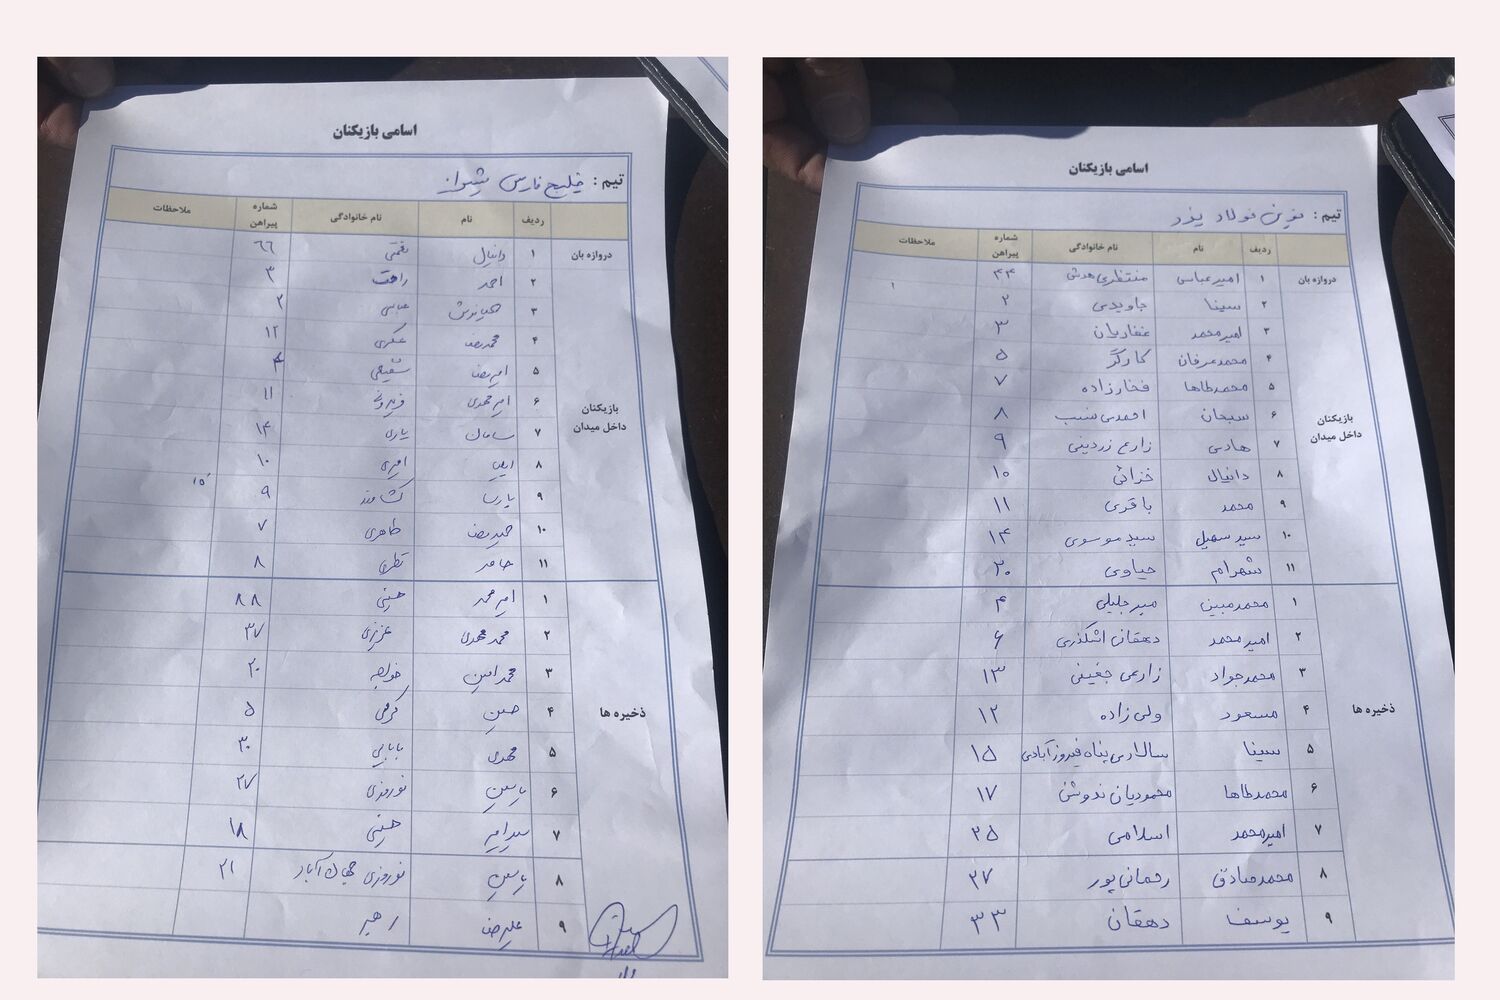 اسامی بازیکنان
تیم : خلیج فارس شیراز
ردیف نام نام خانوادگی شماره پیراهن ملاحظات
دروازه بان
۱ دانیال نعمتی ۶۶
بازیکنان داخل میدان
۲ احمد راحت ۳
۳ عباسی ۲
۴ محمدرضا عسکری ۱۲
۵ امیررضا شفیعی ۴
۶ امیرمهدی ۱۱
۷ سامان یاری ۱۴
۸ امیری ۱۰
۹ پارسا کشاورز ۹
۱۰ حمیدرضا طاهری ۷
۱۱ حامد نظری ۸
ذخیره ها
۱ امیرمحمد حسینی ۸۸
۲ محمدمهدی عزیزی ۳۷
۳ محمدامین خواجه ۲۰
۴ حسین کرمی ۵
۵ مهدی بابایی ۳۰
۶ یاسین نوروزی ۲۷
۷ سیدامیر حسینی ۱۸
۸ یاسین نوروزی جهان آباد ۲۱
۹ علیرضا رهبر
اسامی بازیکنان
تیم : نوین فولاد یزد
ردیف نام نام خانوادگی شماره پیراهن ملاحظات
دروازه بان
۱ امیرعباسی منتظری هدشی ۴۴
بازیکنان داخل میدان
۲ سینا جاویدی ۲
۳ امیرمحمد غفاریان ۳
۴ محمدعرفان کارگر ۵
۵ محمدطاها فخارزاده ۷
۶ سبحان احمدی نسب ۸
۷ هادی زارع زردینی ۹
۸ دانیال خزائی ۱۰
۹ محمد باقری ۱۱
۱۰ سید سهیل سید موسوی ۱۴
۱۱ شهرام حیاوی ۲۰
ذخیره ها
۱ محمدمبین میرجلیلی ۴
۲ امیرمحمد دهقان اشکذری ۶
۳ محمدجواد زارعی جغینی ۱۳
۴ مسعود ولی زاده ۱۲
۵ سینا سالاری پناه فیروزآبادی ۱۵
۶ محمدطاها محمودیان ندوشن ۱۷
۷ امیرمحمد اسلامی ۲۵
۸ محمدصادق رحمانی پور ۲۷
۹ یوسف دهقان ۳۳